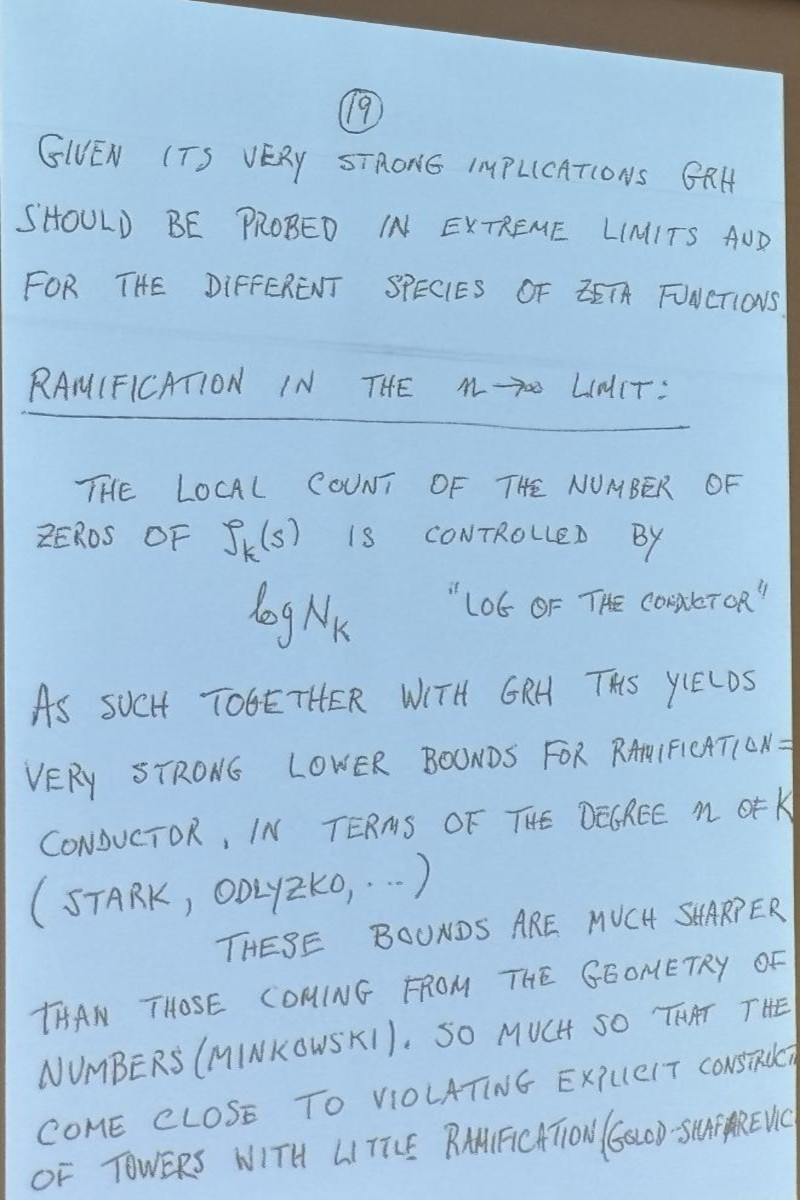 19
GIVEN ITS VERY STRONG IMPLICATIONS GRH
SHOULD BE PROBED IN EXTREME LIMITS AND
FOR THE DIFFERENT SPECIES OF ZETA FUNCTIONS.
RAMIFICATION IN THE n→∞ LIMIT:
THE LOCAL COUNT OF THE NUMBER OF
ZEROS OF ζ_K(s) IS CONTROLLED BY
log N_K "LOG OF THE CONDUCTOR"
AS SUCH TOGETHER WITH GRH THIS YIELDS
VERY STRONG LOWER BOUNDS FOR RAMIFICATION =
CONDUCTOR, IN TERMS OF THE DEGREE n OF K
(STARK, ODLYZKO, ...)
THESE BOUNDS ARE MUCH SHARPER
THAN THOSE COMING FROM THE GEOMETRY OF
NUMBERS (MINKOWSKI). SO MUCH SO THAT THE
COME CLOSE TO VIOLATING EXPLICIT CONSTRUCT
OF TOWERS WITH LITTLE RAMIFICATION (GOLOD-SHAFAREVIC